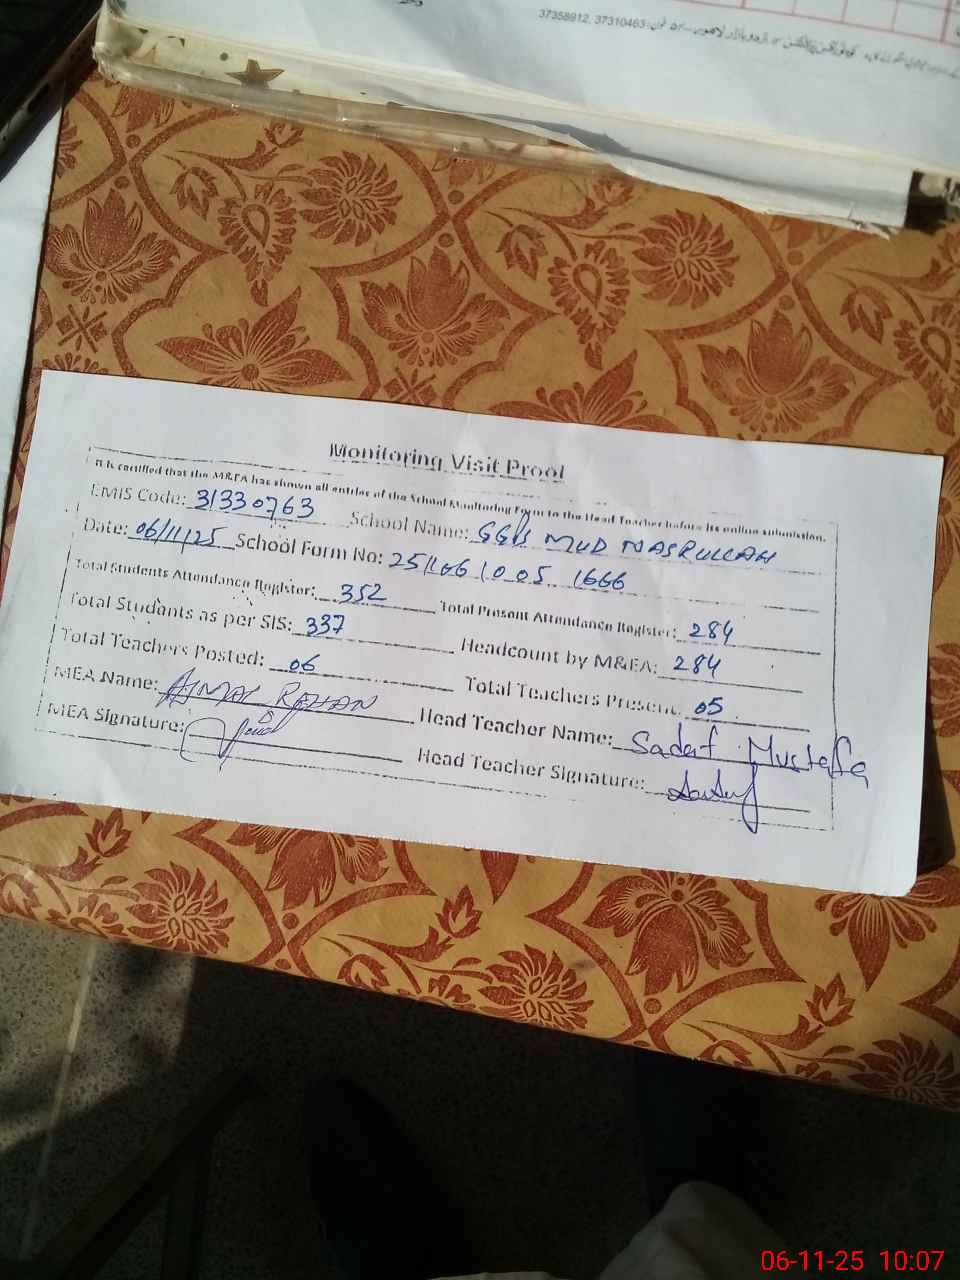 37358912, 37310463
Monitoring Visit Proof
It is certified that the M&EA has shown all entries of the School Monitoring Form to the Head Teacher before its online submission.
EMIS Code: 31330763 School Name: MUD NASRULLAH
Date: 06/11/25 School Form No: 1666
Total Students Attendance Register: 352 Total Present Attendance Register: 284
Total Students as per SIS: 337 Headcount by M&EA: 284
Total Teachers Posted: 06 Total Teachers Present: 05
MEA Name: AJMAL REHAN Head Teacher Name: Sadaf Mustafa
MEA Signature: Head Teacher Signature:
06-11-25 10:07